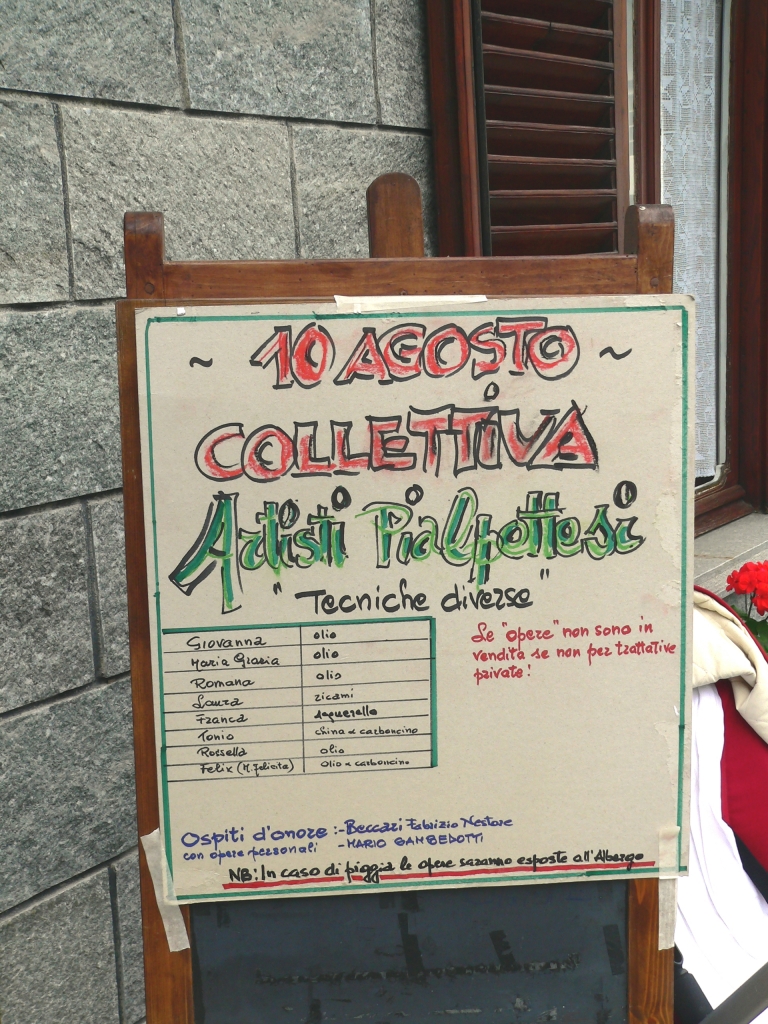 ~ 10 AGOSTO ~
COLLETTIVA
Artisti Pialpettesi
"Tecniche diverse"
Giovanna olio
Maria Grazia olio
Romana olio
Laura ricami
Franca Acquerello
Tonio china e carboncino
Rossella olio
Felix (M. Felicita) olio e carboncino
Le "opere" non sono in
vendita se non per trattative
private!
Ospiti d'onore :- Beccari Fabrizio Nestore
con opere personali - MARIO GAMBEDOTTI
NB: In caso di pioggia le opere saranno esposte all'Albergo